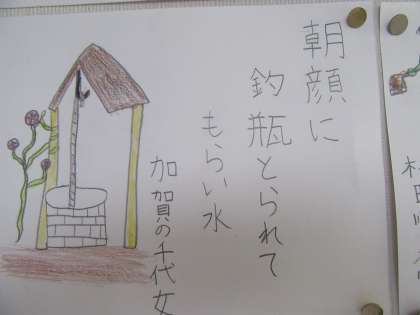 朝顔に
釣瓶とられて
もらい水
加賀の千代女